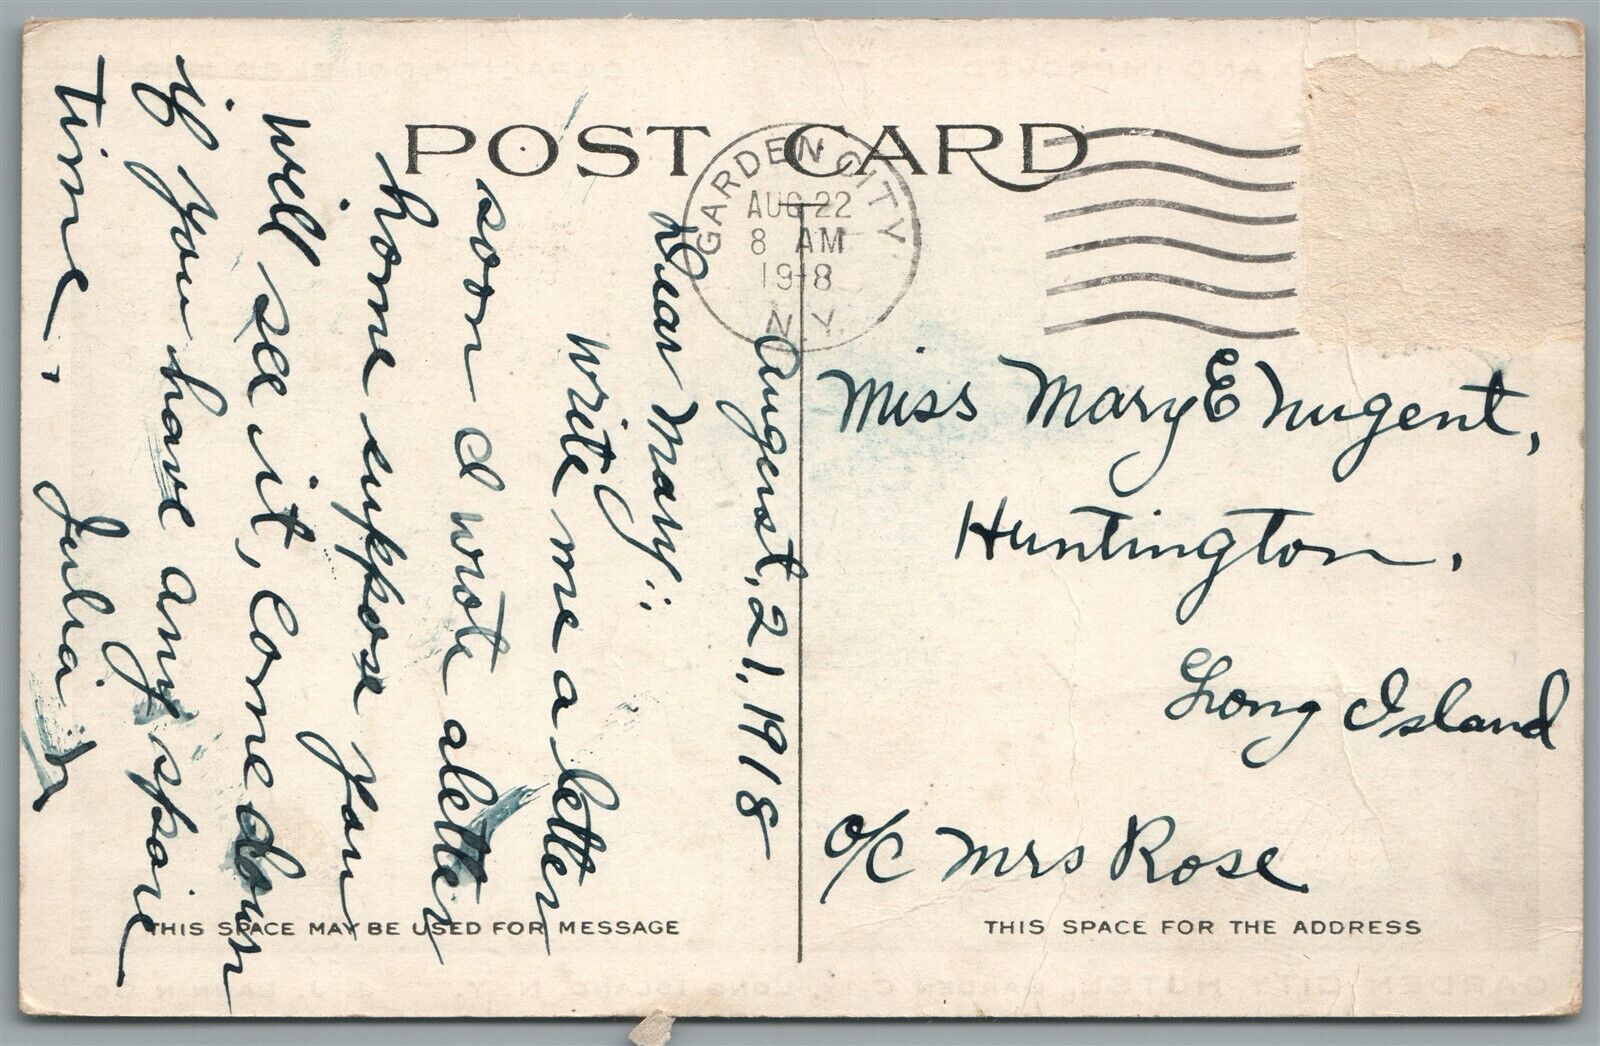 POST CARD
GARDEN CITY,
AUG 22
8 AM
1918
N.Y.
August, 21, 1918
Dear Mary:
Write me a letter
soon I wrote a letter
home suppose you
will see it, Come down
if you have any spare
time.
Julia
Miss Mary E Nugent,
Huntington.
Long Island
o/c Mrs Rose
THIS SPACE MAY BE USED FOR MESSAGE
THIS SPACE FOR THE ADDRESS